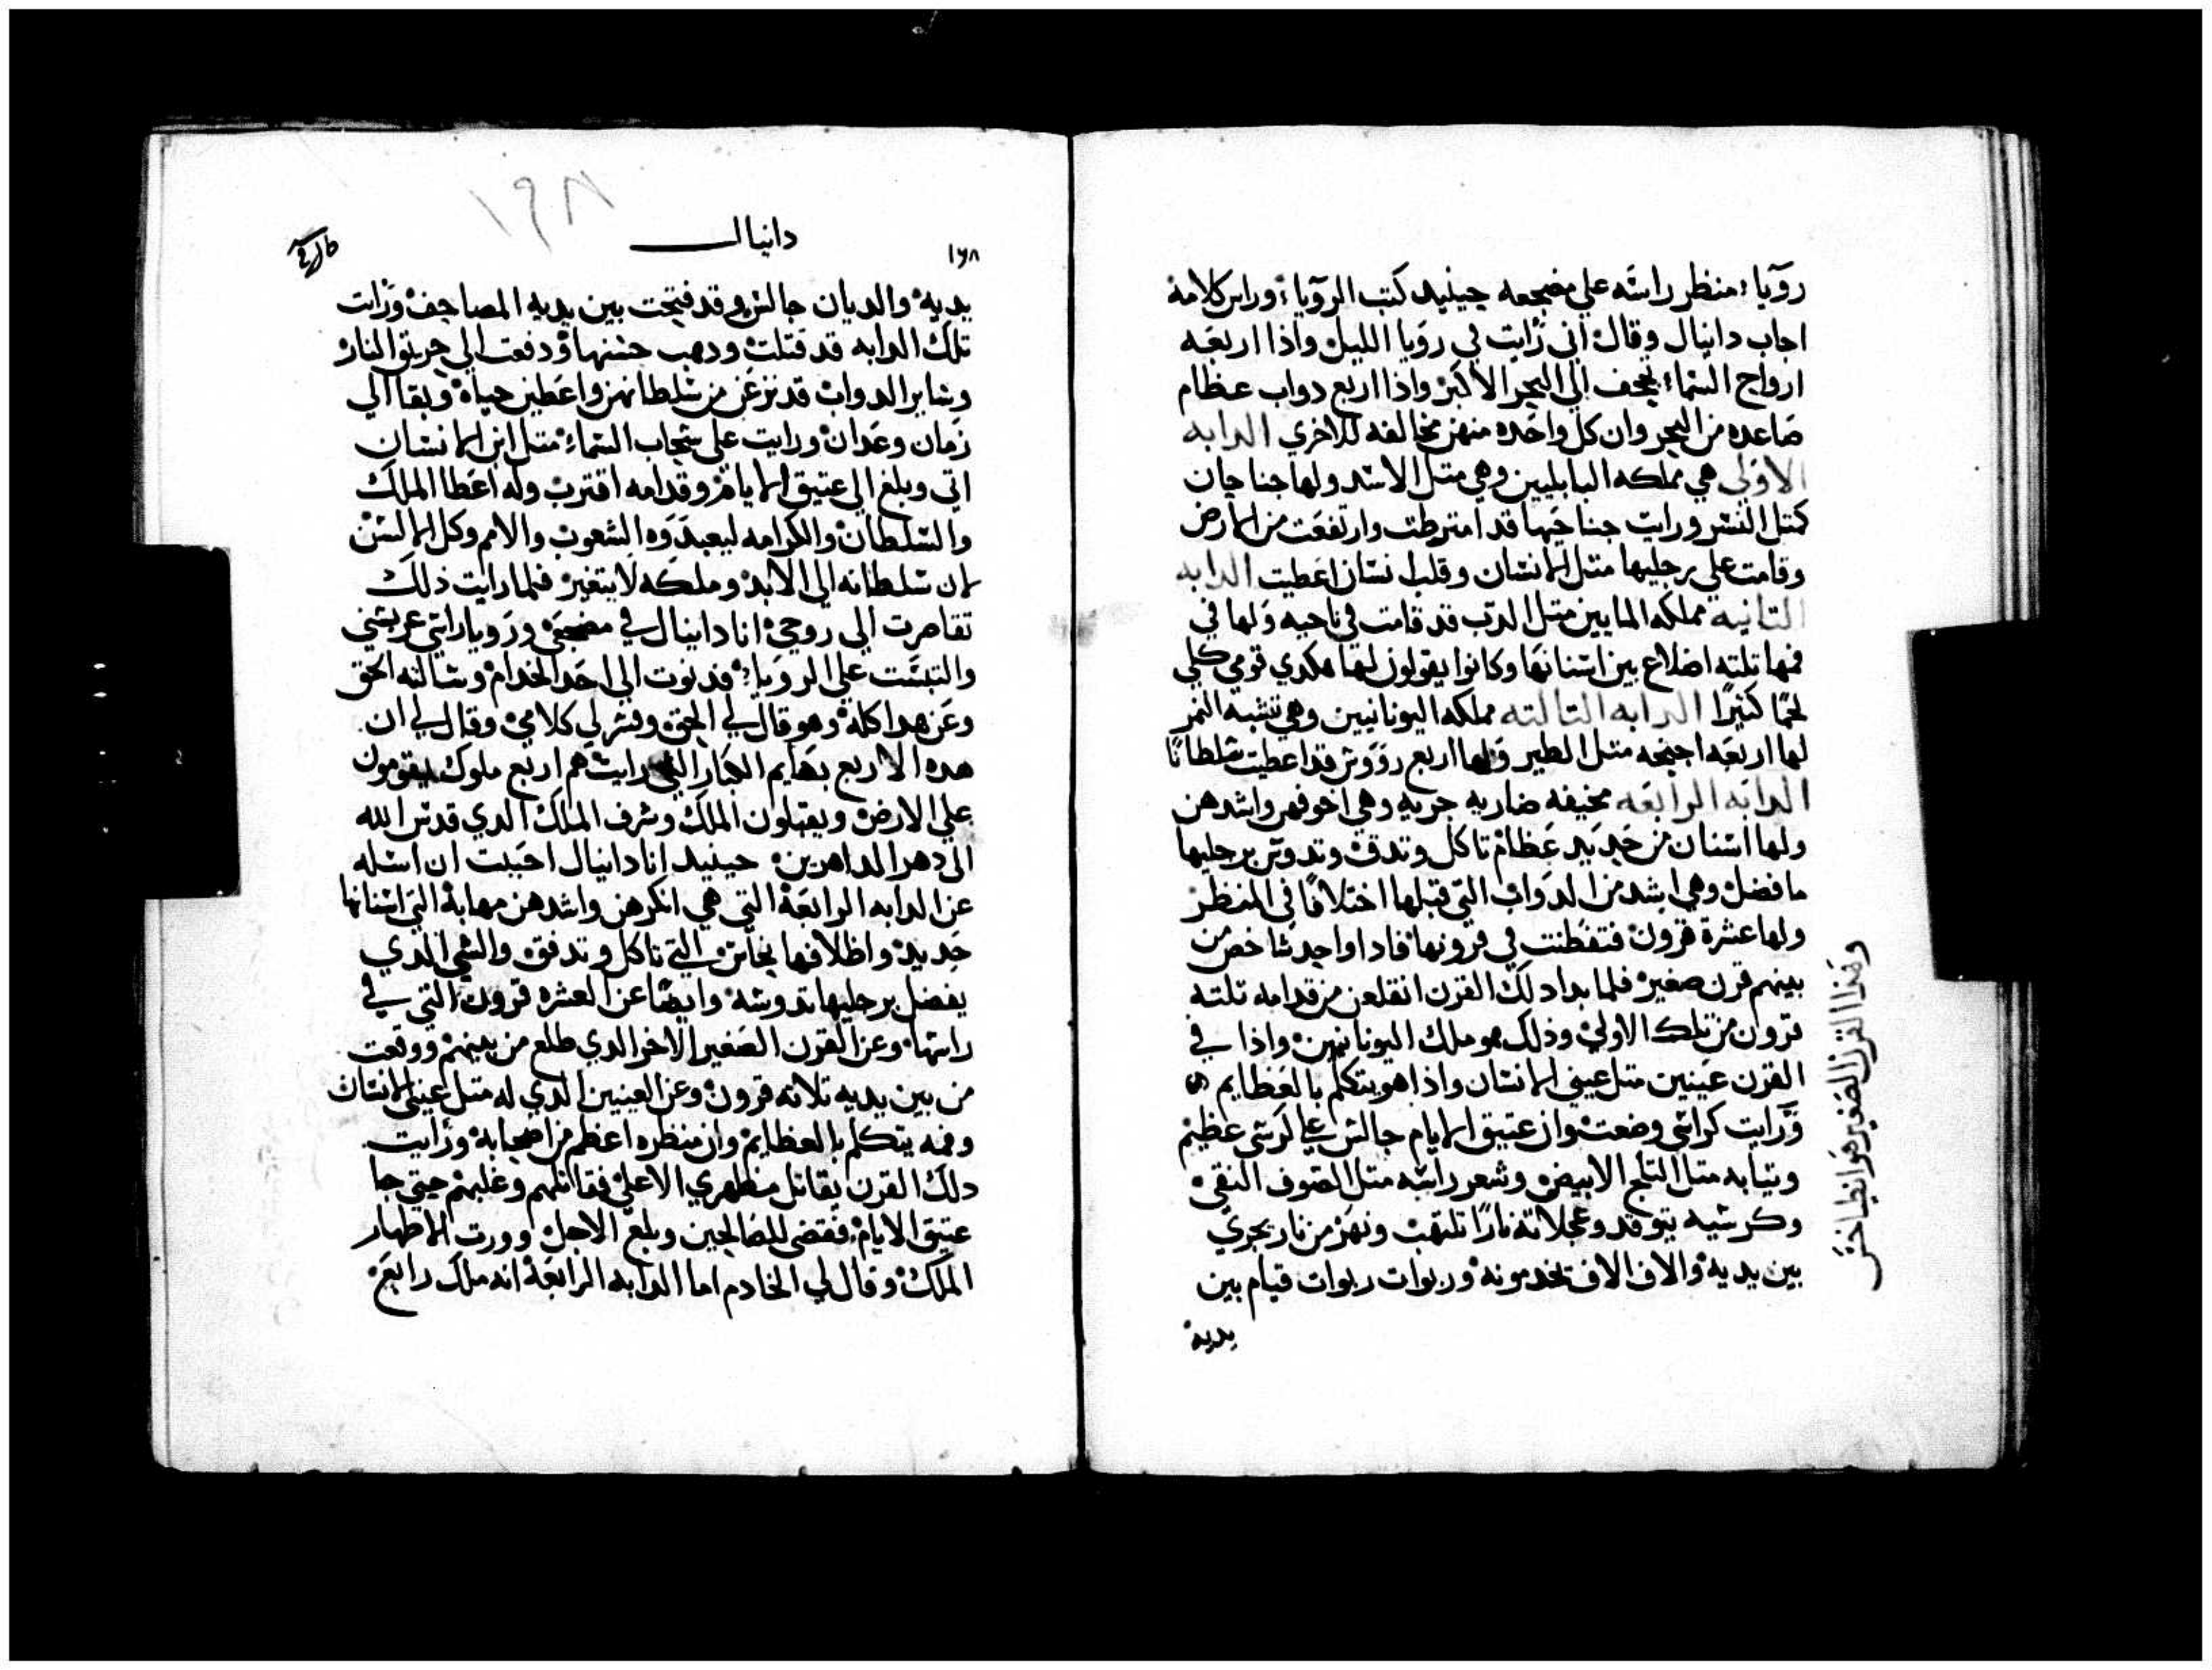 رويا؛ منظر راسه علي مضجعه حينيد كتب الرويا؛ وراس كلامه
اجاب دانيال وقال اني رايت في رويا الليل واذا اربعه
ارواح السماء؛ تعجف الي البحر الاكبر واذا اربع دواب عظام
صاعده من البحر وان كل واحده منهن مخالفه للاخري الدابه
الاولي هي مملكه البابليين وهي متل الاسد ولها جناحان
كمتل النسر ورايت جناحيها قد امترطت وارتفعت من الارض
وقامت علي رجليها متل الانسان وقلب انسان اعطيت الدابه
التانية مملكه المايين متل الدب قد قامت في ناحيه ولها في
فمها تلته اضلاع بين اسنانها وكانوا يقولون لها هكدي قومي كلي
لحمًا كتيرًا الدابه التالته مملكه اليونانيين وهي تشبه النمر
لها اربعه اجنحه متل الطير ولها اربع رووس قد اعطيت سلطانًا
الدابه الرابعه مخيفه ضاريه جريه وهي اخوفهن واشدهن
ولها اسنان من حديد عظام تاكل وتدق وتدوس برجليها
ما فضل وهي اشد من الدواب التي قبلها اختلافًا في المنظر
ولها عشرة قرون فتفطنت في قرونها فادا واحد شاخص من
بينهم قرن صغير فلما بدا دلك القرن انقلعن من قدامه تلته
قرون من تلك الاولي وذلك هو ملك اليونانيين واذا في
القرن عينين متل عيني الانسان واذا هو يتكلم بالعظايم
ورايت كراسي وضعت وان عتيق الايام جالس علي كرسي عظيم
وتيابه متل التلج الابيض وشعر راسه متل الصوف النقي
وكرسيه يتوقد وعجلاته نارًا تلتهب ونهر من نار يجري
بين يديه والاف الاف تخدمونه وربوات ربوات قيام بين
يديه
وهذا القرن الصغير هو انطياخس
١٩٨
دانيال
١٦٨
يديه والديان جالس وقد فتحت بين يديه المصاحف ورايت
تلك الدابه قد قتلت ودهب جتنها ودفعت الي حريق النار
وساير الدواب قد نزعن من سلطانهن واعطين حياة وبقا الي
زمان وعدان ورايت علي سحاب السماء متل ابن الانسان
اتي وبلغ الي عتيق الايام وقدامه اقترب وله اعطا الملك
والسلطان والكرامه ليعبدوه الشعوب والامم وكل الالسن
لان سلطانه الي الابد وملكه لا يتغير فلما رايت ذلك
تقاصرت الي روحي انا دانيال في مضجعي ورويا راسي
والتبست علي الرويا؛ فدنوت الي احد الخدام وسالته الحق
وعن هدا كله وهو قال لي الحق وفسر لي كلامي وقال لي ان
هده الاربع بهايم الكبار التي رايت هم اربع ملوك يقومون
علي الارض ويقبلون الملك وشرف الملك الدي قدس الله
الي دهر الداهرين حينيد انا دانيال احببت ان اسله
عن الدابه الرابعة التي هي انكرهن واشدهن مهابة التي اسنانها
حديد واظلافها نحاس التي تاكل وتدفق والشي الدي
يفضل برجليها تدوسه وايضًا عن العشره قرون التي في
راسها وعن القرن الصغير الاخر الدي طلع من بينهم ووقعت
من بين يديه تلاته قرون وعن العينين الدي له متل عيني الانسان
وفمه يتكلم بالعظايم وان منظره اعظم من اصحابه ورايت
دلك القرن يقاتل مظهري الاعلي فقاتلهم وغلبهم حتي جا
عتيق الايام فقضي للصالحين وبلغ الاجل وورت الاطهار
الملك وقال لي الخادم اما الدابه الرابعة انه ملك رابع